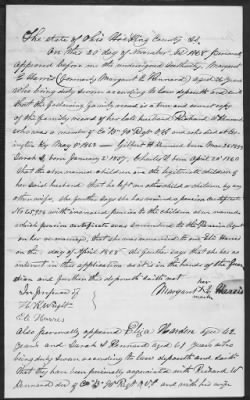 The State of Ohio Hocking County SS.
On this 20th day of November AD 1868, personally
appeared before me the undersigned Authority, Margaret
E Harris (formerly Margaret E Kennard) aged 26 years
who being duly sworn according to law deposeth and saith
that the following family record is a true and correct copy
of the family record of her late husband Richard Kennard
who was a member of Co "B" 90 Regt OVI and who died at
by May 8th 1863 — Gilbert H Kennard born
Sarah E, born January 2nd 1857; Charles W born April 20th 1860
that the above named children are the legitimate children of
her said husband that he left no other child or children by any
other wife. She further says she was issued a pension certificate
No with increased pension to the children above named
which pension certificate was surrendered to the Pension Agent
on her re-marriage, that she was married to one Eli Harris
on the day of April 1868 She further says that she has no
interest in this application as it is in the hands of the Guardian
and further this deponent saith not.
In presence of
her
Margaret E Harris
mark
H R Wright
E E Harris
Also personally appeared Eliza Harden aged 62
years and Sarah E Kennard aged 61 years who
being duly sworn according to law deposeth and saith
that they have been personally acquainted with Richard W
Kennard dec'd of Co "B" 90 Regt O.V.I. and with his wife